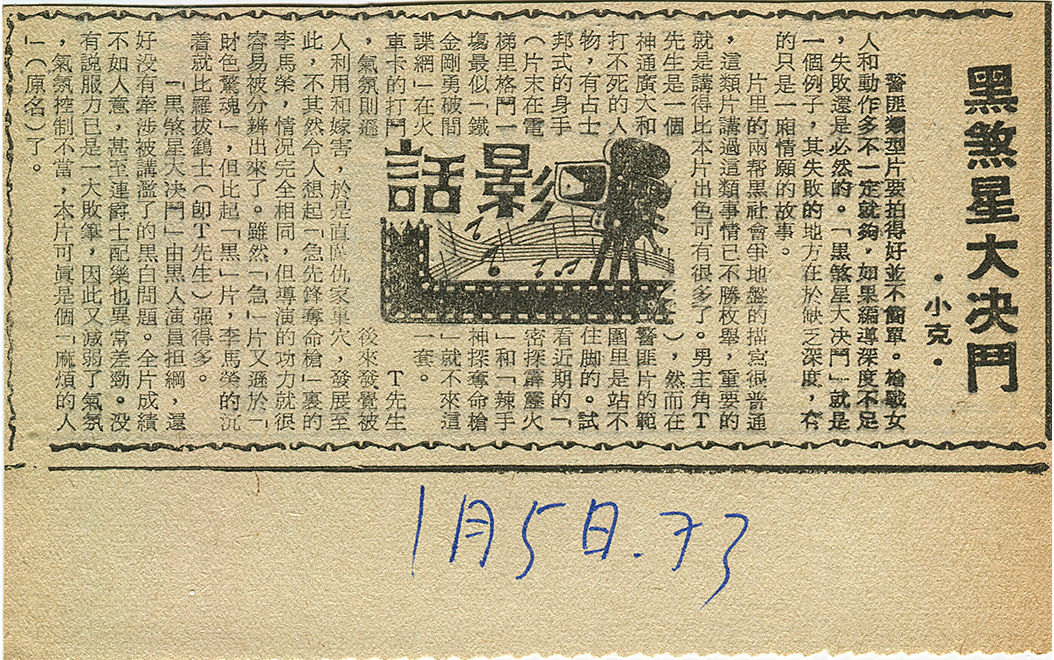 黑煞星大决鬥
·小克·
警匪類型片要拍得好並不簡單。槍戰女
人和動作多不一定就夠，如果編導深度不足
，失敗還是必然的。「黑煞星大决鬥」就是
一個例子，其失敗的地方在於缺乏深度，有
的只是一廂情願的故事。
片里的兩帮黑社會爭地盤的描寫很普通
，這類片講過這類事情已不勝枚舉，重要的
就是講得比本片出色可有很多了。男主角T
先生是一個
神通廣大和
打不死的人
物，有占士
邦式的身手
（片末在電
梯里格鬥一
塲最似「鐵
金剛勇破間
諜網」在火
車卡的打鬥
，氣氛則遜
影話
），然而在
警匪片的範
圍里是站不
住脚的。試
看近期的「
密探霹靂火
」和「辣手
神探奪命槍
」就不來這
一套。
T先生
後來發覺被
人利用和嫁害，於是直搗仇家巢穴，發展至
此，不其然令人想起「急先鋒奪命槍」裏的
李馬榮，情况完全相同，但導演的功力就很
容易被分辨出來了。雖然「急」片又遜於「
財色驚魂」，但比起「黑」片，李馬榮的沉
着就比羅拔鶴士（卽T先生）强得多。
「黑煞星大决鬥」由黑人演員担綱，還
好没有牽涉被講濫了的黑白問題。全片成績
不如人意，甚至連爵士配樂也異常差勁。没
有説服力已是一大敗筆，因此又減弱了氣氛
，氣氛控制不當，本片可眞是個「麻煩的人
」（原名）了。
1月5日.73